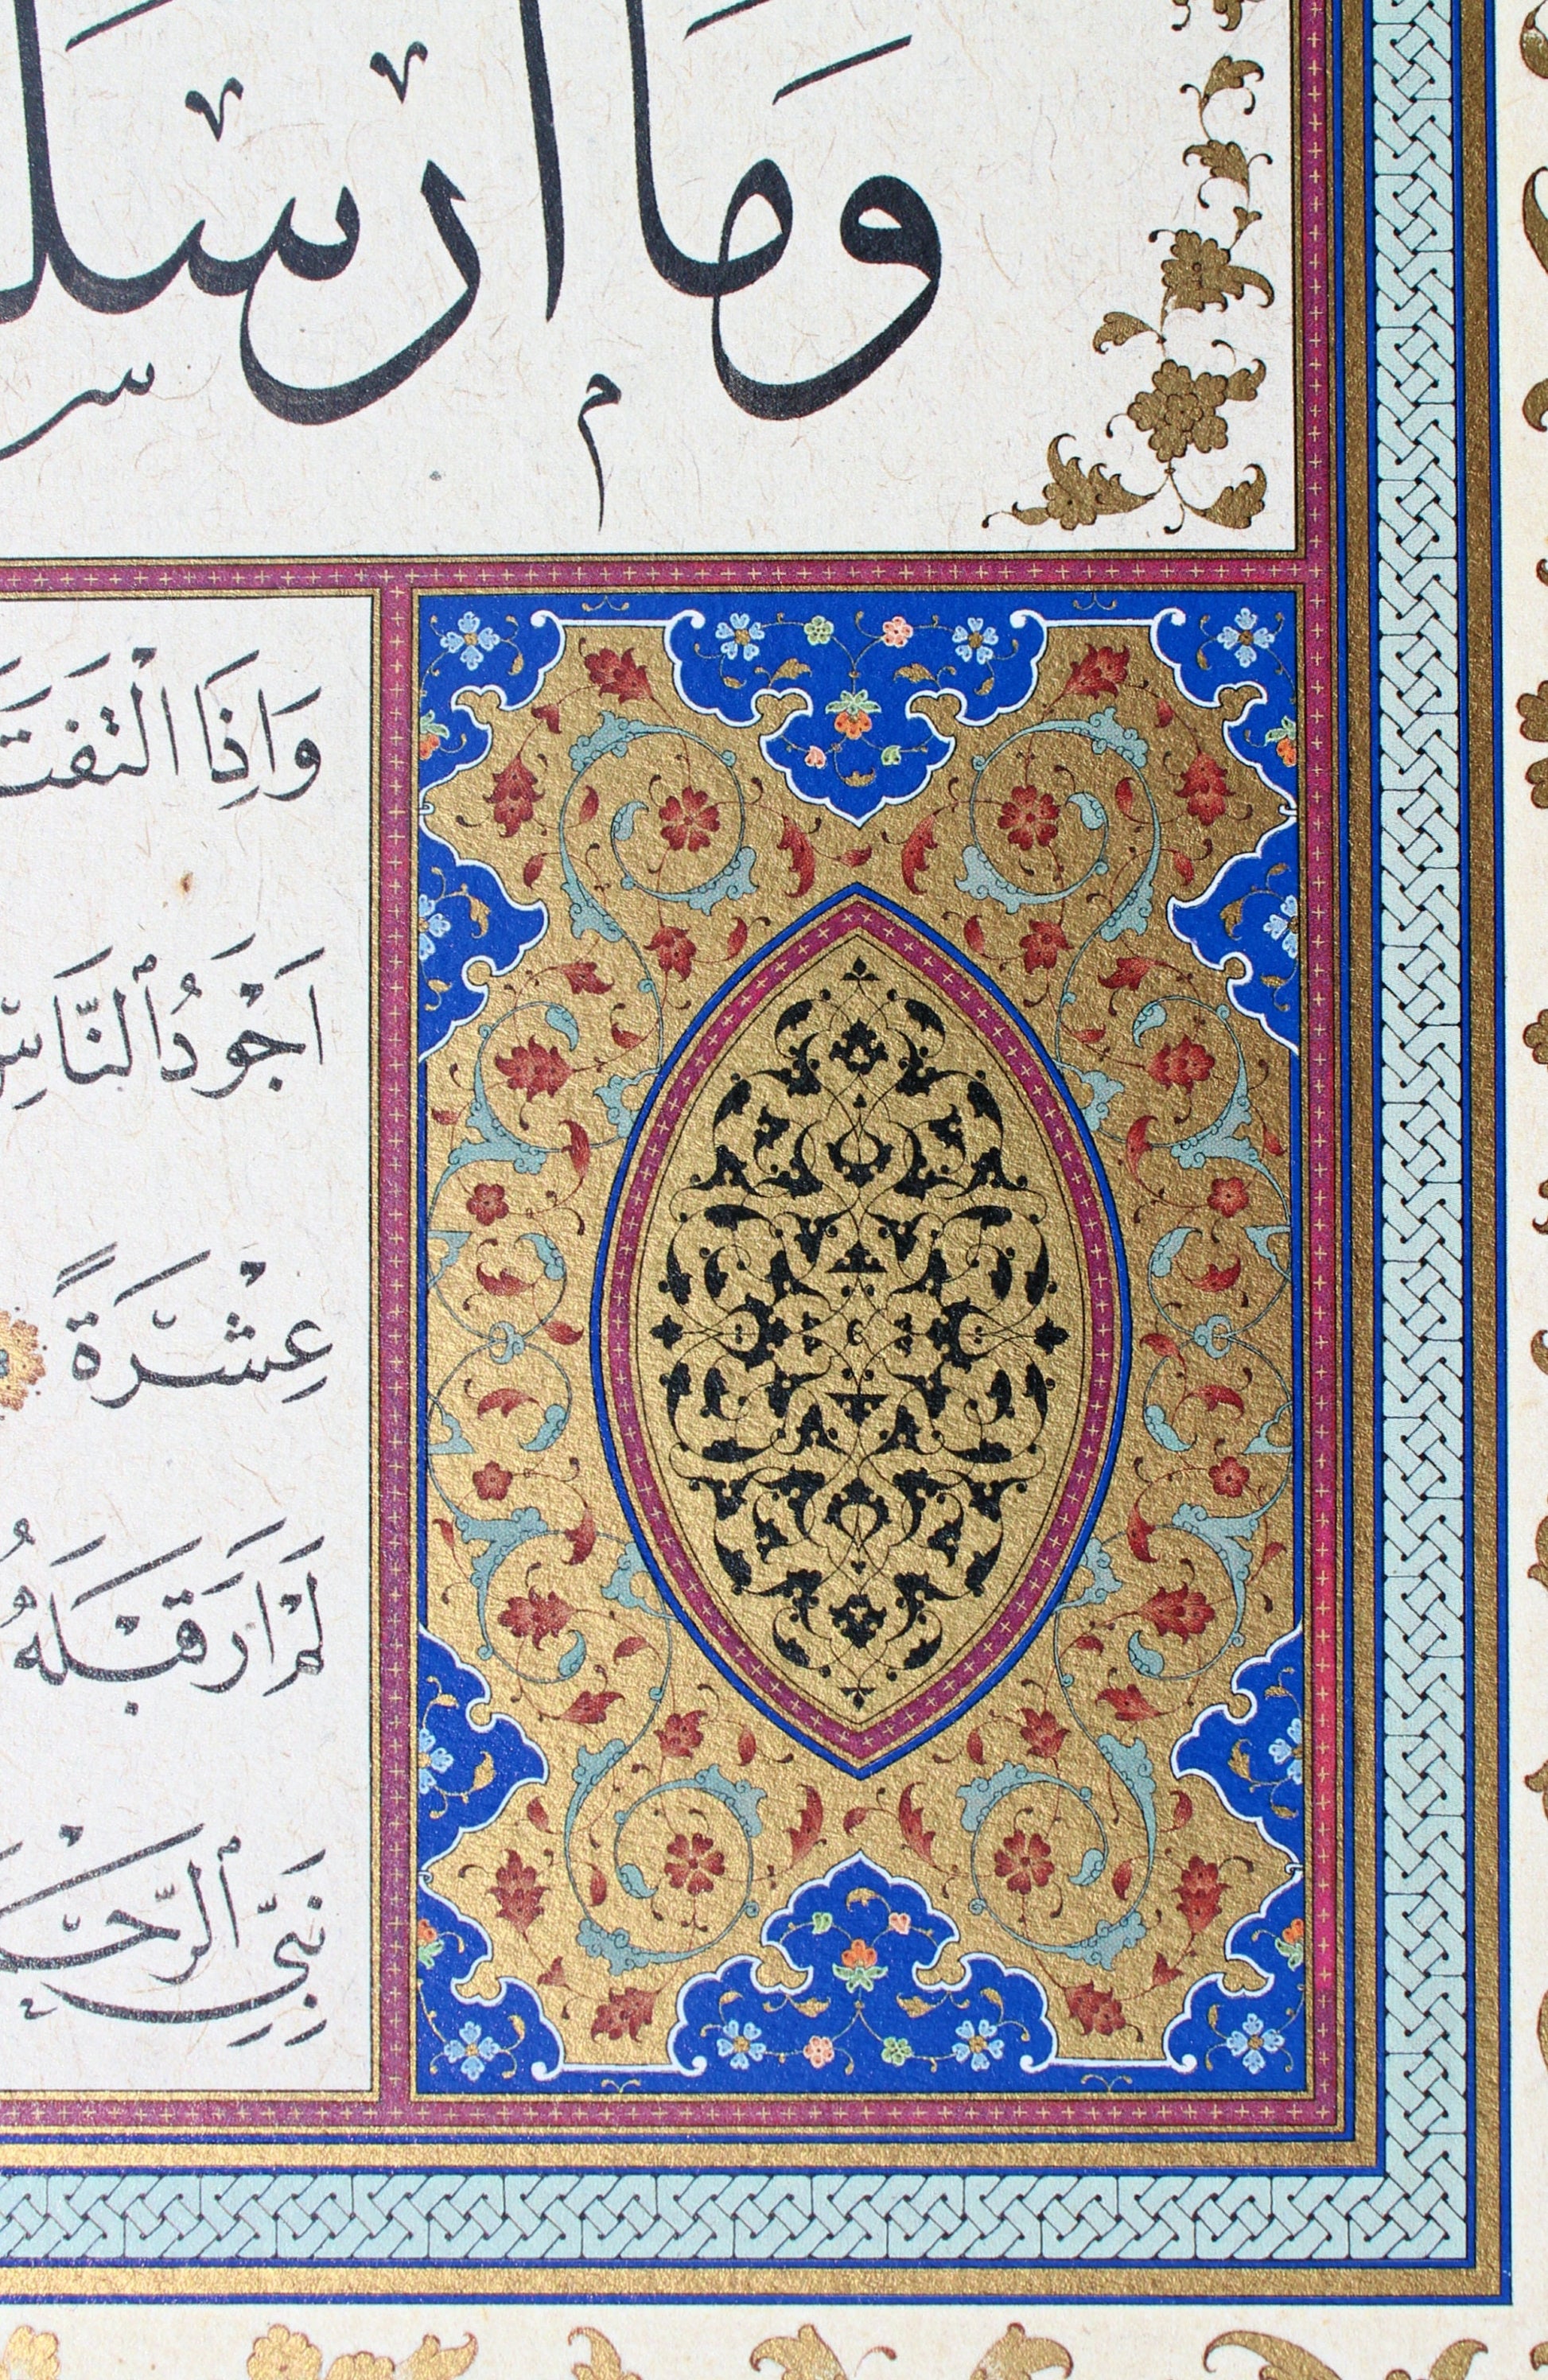 وَمَا اَرْسَلْ
وَاِذَا الْتَفَتَ
اَجْوَدُ ٱلنَّاسِ
عِشْرَةً
لَمْ اَرَ قَبْلَهُ
نَبِيِّ ٱلرَّحْمَ